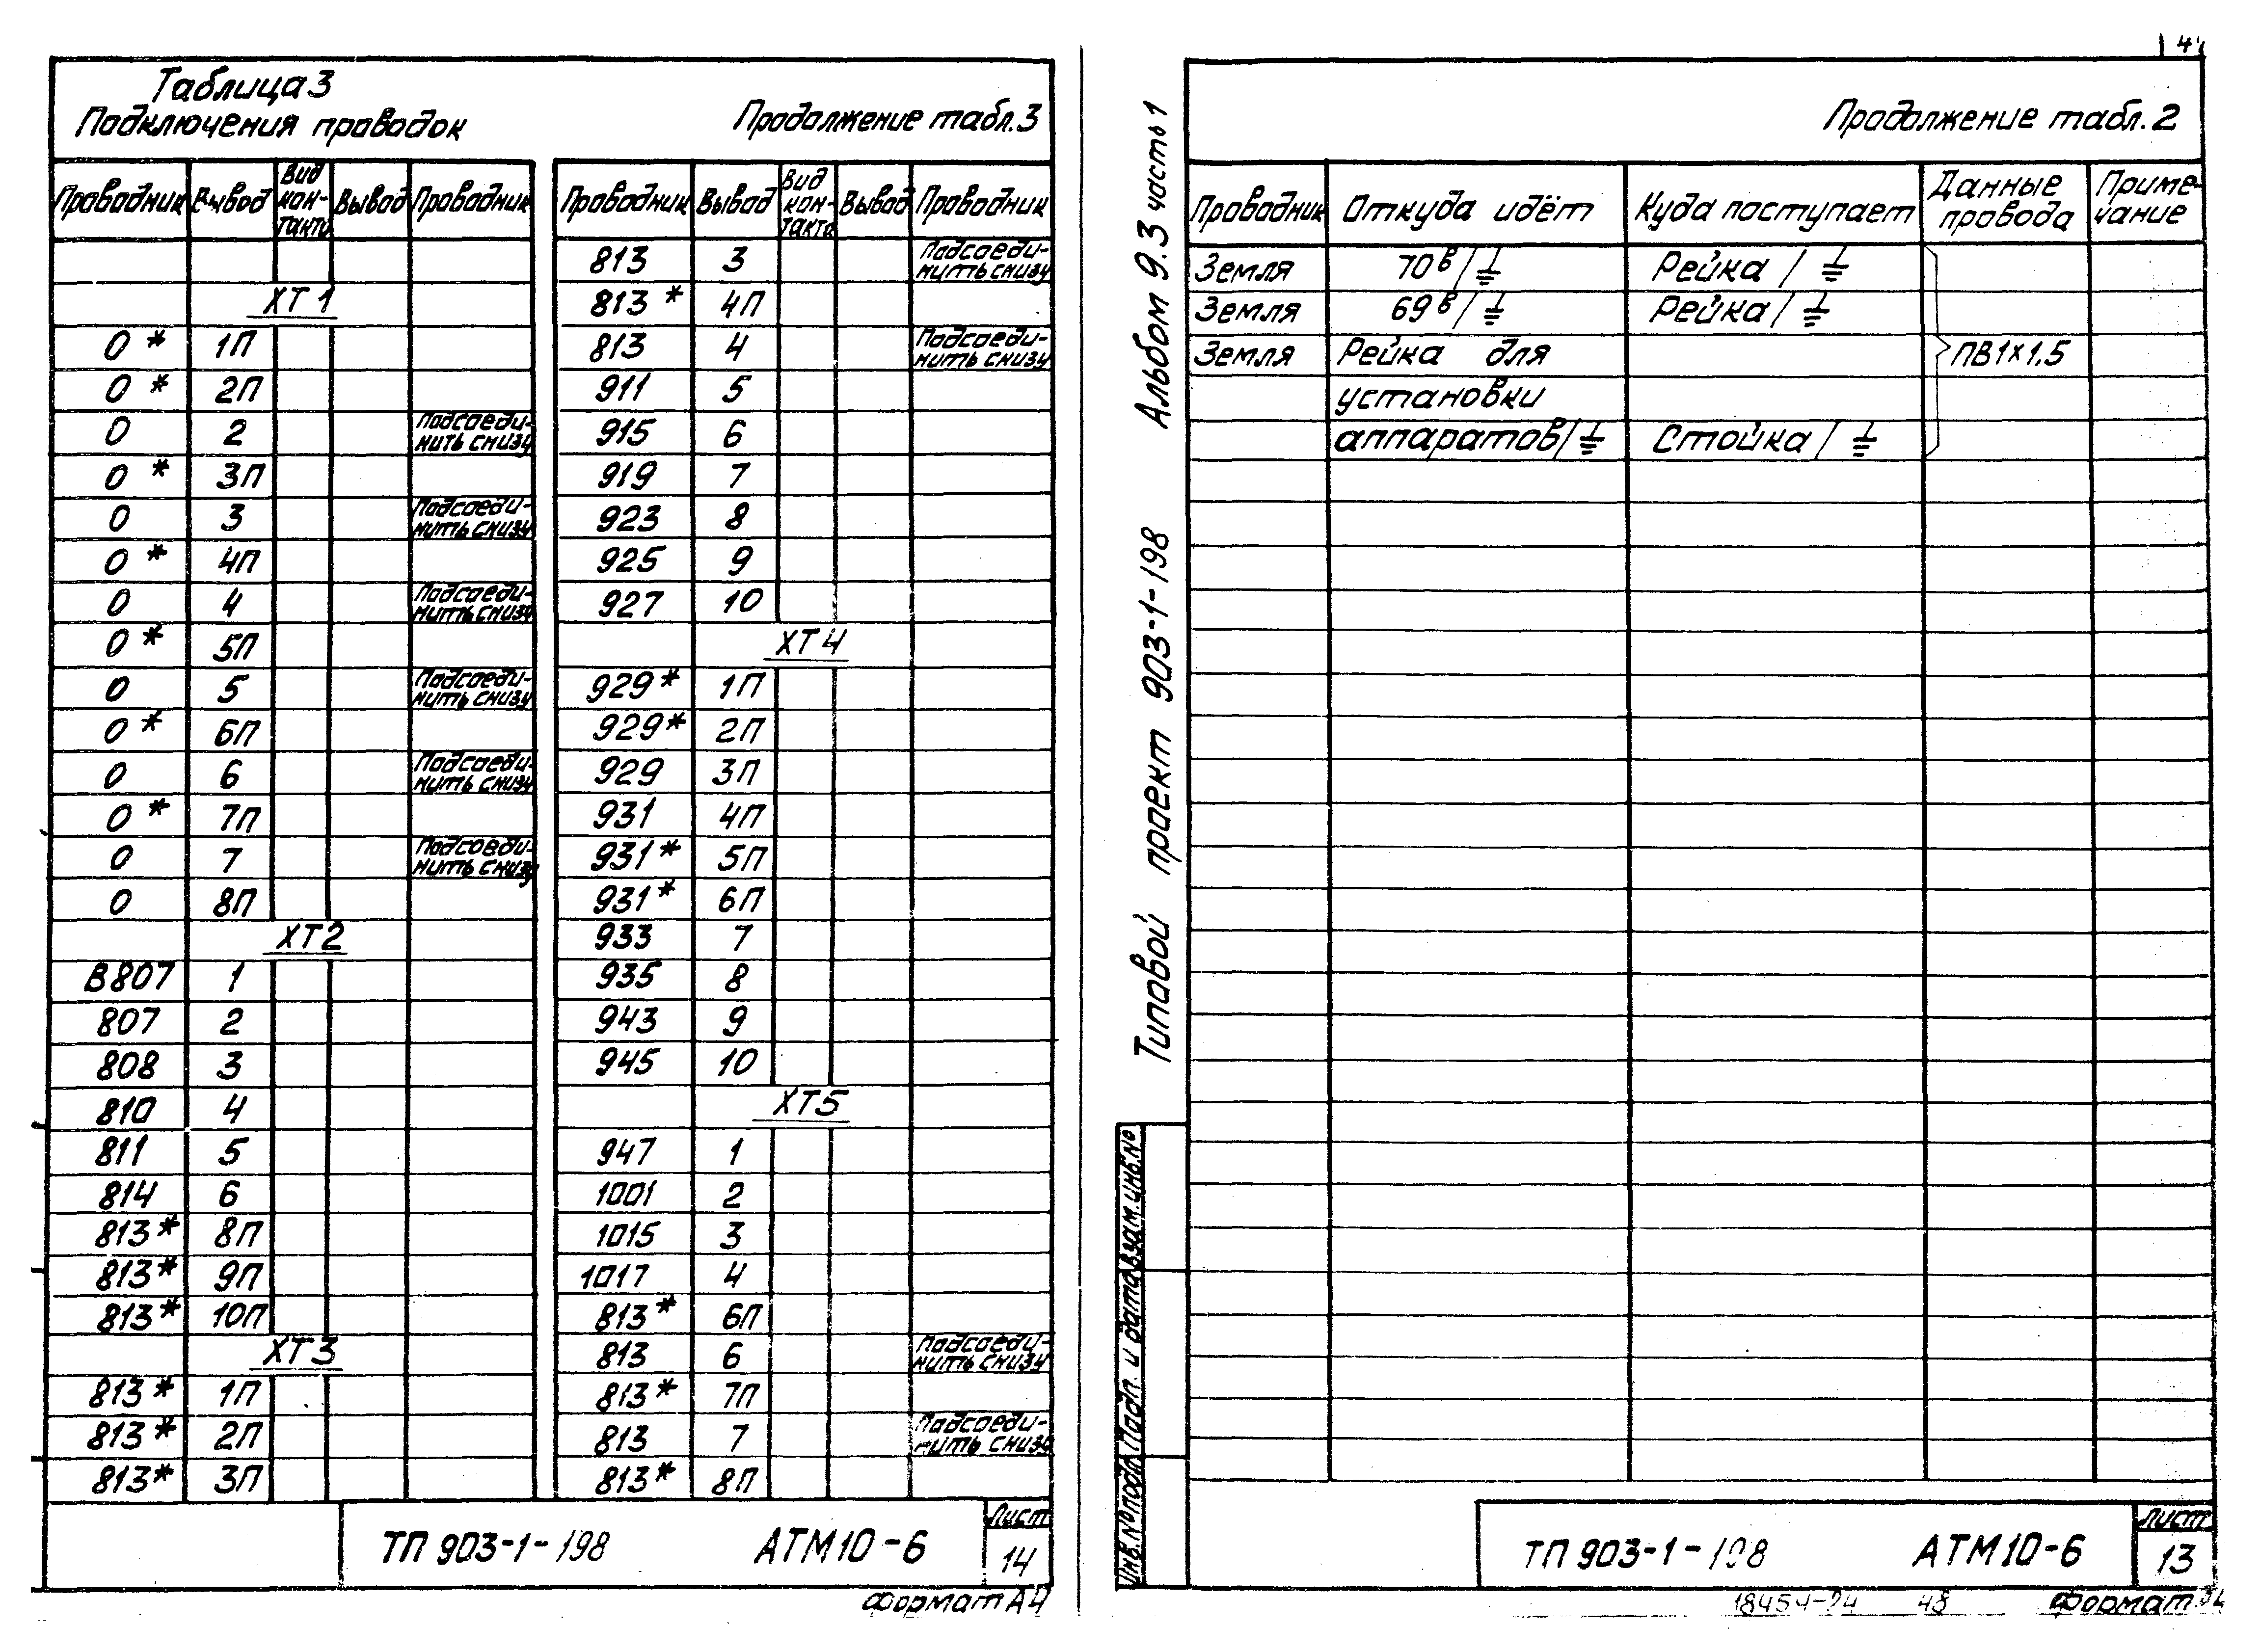 Таблица 3
Подключения проводок
Продолжение табл. 3
Проводник Вывод Вид кон-такта Вывод Проводник
ХТ1
0* 1П
0* 2П
0 2 Подсоеди-нить снизу
0* 3П
0 3 Подсоеди-нить снизу
0* 4П
0 4 Подсоеди-нить снизу
0* 5П
0 5 Подсоеди-нить снизу
0* 6П
0 6 Подсоеди-нить снизу
0* 7П
0 7 Подсоеди-нить снизу
0 8П
ХТ2
В807 1
807 2
808 3
810 4
811 5
814 6
813* 8П
813* 9П
813* 10П
ХТ3
813* 1П
813* 2П
813* 3П
Проводник Вывод Вид кон-такта Вывод Проводник
813 3 Подсоеди-нить снизу
813* 4П
813 4 Подсоеди-нить снизу
911 5
915 6
919 7
923 8
925 9
927 10
ХТ4
929* 1П
929* 2П
929 3П
931 4П
931* 5П
931* 6П
933 7
935 8
943 9
945 10
ХТ5
947 1
1001 2
1015 3
1017 4
813* 6П
813 6 Подсоеди-нить снизу
813* 7П
813 7 Подсоеди-нить снизу
813* 8П
ТП 903-1-198 АТМ10-6
Лист
14
Формат А4
Типовой проект 903-1-198 Альбом 9.3 часть 1
Продолжение табл. 2
Проводник Откуда идёт Куда поступает Данные провода Приме-чание
Земля 70в/⏚ Рейка/⏚
Земля 69в/⏚ Рейка/⏚
Земля Рейка для ПВ1х1,5
установки
аппаратов/⏚ Стойка/⏚
Инв.№подл. Подп. и дата Взам.инв.№
ТП 903-1-198 АТМ10-6
Лист
13
48
Формат